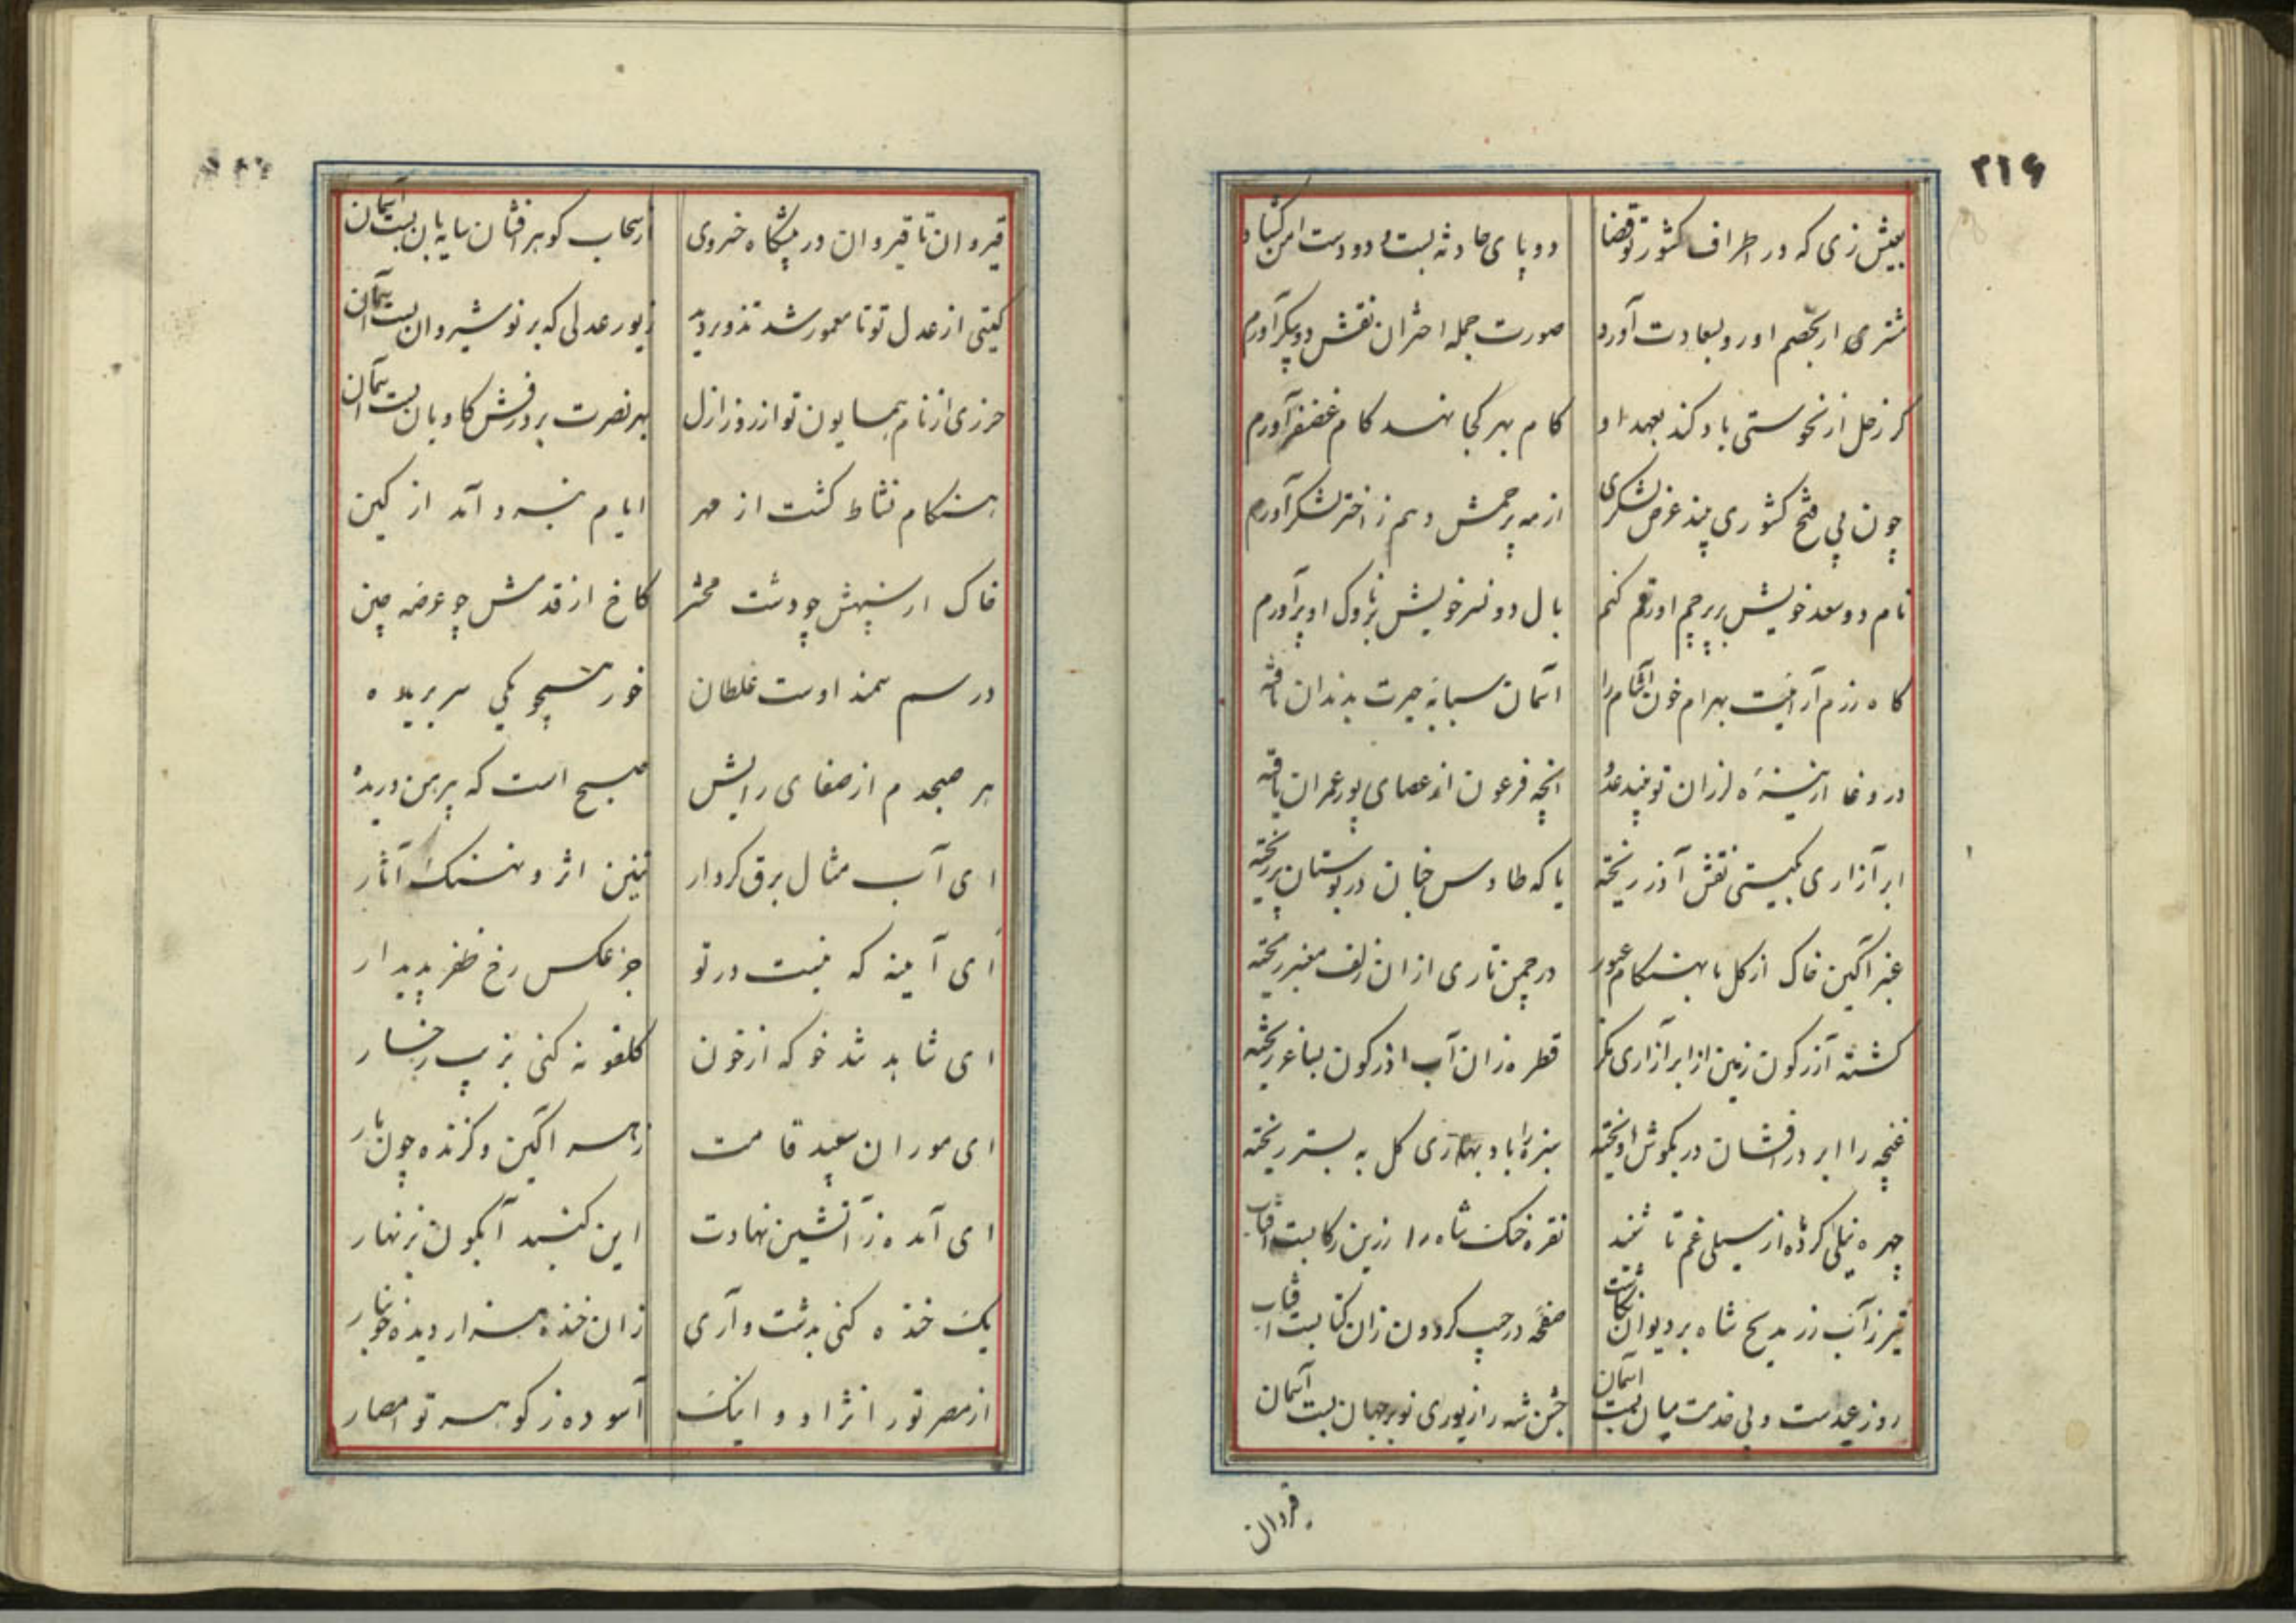 ٢١۶
بعیش زی که در اطراف کشور تو قضا دو پای حادثه بست و دو دست امن گشاد
مشتری ار بخصم او رو بسعادت آورد صورت جمله اختران نقش دو پیکر آورم
کر زحل از نحوستی یاد کند بعهد او کام بهر کجا نهد کام غضنفر آورم
چون پی فتح کشوری بیند عرض لشکری از مه پرچمش و هم ز اختر لشکر آورم
نام دو سعد خویش بر پرچم او رقم کنم بال دو نسر خویش بر ناوک او پر آورم
گاه رزم آرائیت بهرام خون آشام را آسمان سبابه حیرت بدندان یافته
در وغا از نیزه لرزان تو بیند عدو آنچه فرعون از عصای پور عمران یافته
ابر آزاری بگیتی نقش آذر ریخته یا که طاوس جنان در بوستان پر ریخته
عنبر آگین خاک از گل یا بهنگام عبور در چمن تاری از ان زلف معنبر ریخته
گشته آزرگون زمین از ابر آزاری مگر قطره زان آب آذرگون بساغر ریخته
غنچه را ابر درافشان در بگوش آویخته سبزه را باد بهاری گل به بستر ریخته
چهره نیلی کرده از سیلی غم تا شد نقره خنگ شاه را زرین رکابست آفتاب
تیر ز آب زر مدیح شاه بر دیوان نگاشت صفحه در جیب گردون زان کتابست آفتاب
روز عیدست و پی خدمت میان بست آسمان جشن شه را زیوری نو بر جهان بست آسمان
قیروان
قیروان تا قیروان در پیشگاه خسروی از سحاب گوهر افشان سایه بان بست آسمان
گیتی از عدل تو تا معمور شد تزویر دید زیور عدلی که بر نوشیروان بست آسمان
حرزی از نام همایون تو از روز ازل بهر نصرت بر درفش کاویان بست آسمان
هنگام نشاط گشت از مهر ایام نبرد آمد از کین
خاک از سپهش چو دشت محشر کاخ از قدمش چو عرصه چین
در سم سمند اوست غلطان خورشید چو یکی سر بریده
هر صبحدم از صفای رایش صبح است که پیرهن دریده
ای آب مثال برق کردار تنین اثر و نهنگ آثار
ای آینه که نیست در تو جز عکس رخ ظفر پدیدار
ای شاهد تند خو که از خون گلغونه کنی بزیب رخسار
ای مور ان سپید قامت زهر آگین و گزنده چون مار
ای آمده ز آتشین نهادت این گنبد آبگون بزنهار
یک خنده کنی بدشت و آری زان خنده هزار دیده خونبار
از مصر تو را نژاد و اینک آسوده ز گوهر تو امصار